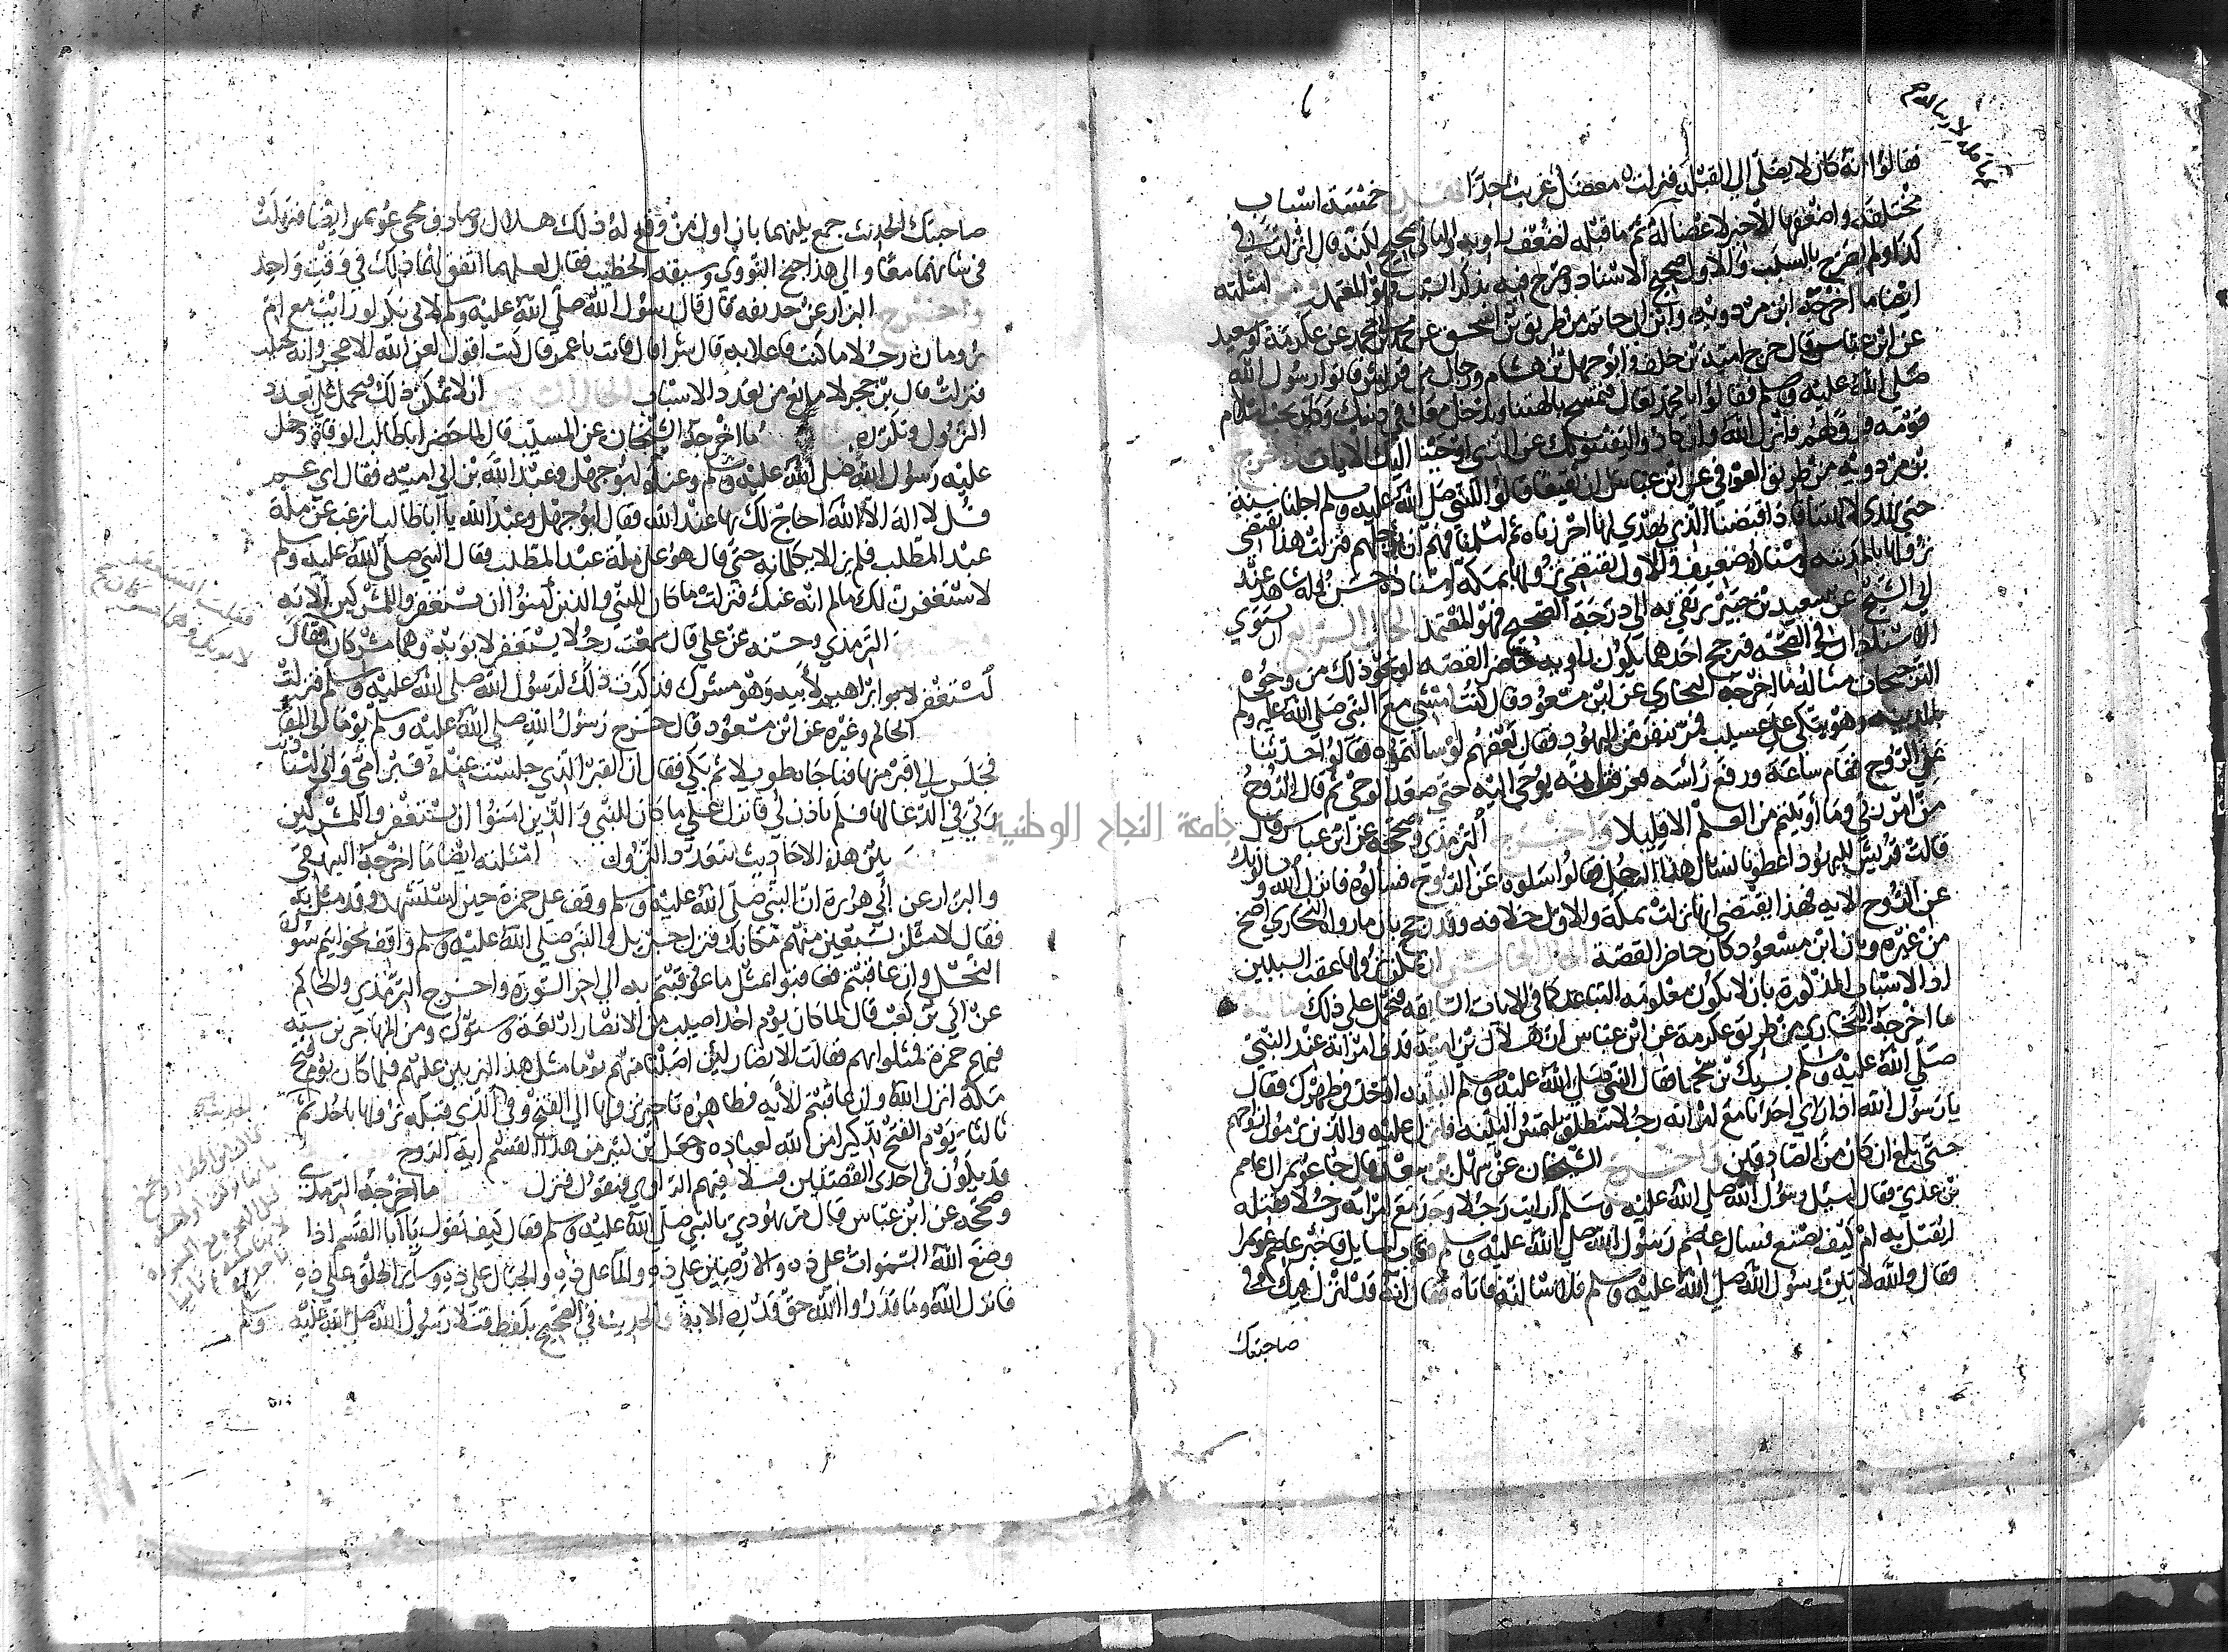 فقالوا انه كان لا يصلي الى القبلة فنزلت معضل غريب جدا خمسة اسباب
مختلفة واضعفها الاخير لاعضاله ثم ما قبله لضعف راويه والثاني صحيح لكنه قال انزلت في
كذا ولم يصرح بالسبب والاول صحيح الاسناد وصرح فيه بذكر السبب فهو المعتمد امثلته
ايضا ما اخرجه ابن مردويه وابن ابي حاتم من طريق بن اسحق عن محمد بن محمد عن عكرمة او سعيد
عن ابن عباس قال خرج امية بن خلف وابو جهل بن هشام ورجال من قريش فاتوا رسول الله
صلى الله عليه وسلم فقالوا يا محمد تعال فتمسح بالهتنا وندخل معك في دينك وكان يحب اسلام
قومه فرق لهم فانزل الله وان كادوا ليفتنونك عن الذي اوحينا اليك الايات واخرج
بن مردويه من طريق العوفي عن ابن عباس ان ثقيفا قالوا للنبي صلى الله عليه وسلم اجلنا سنة
حتى يهدى لالهتنا فاذا قبضنا الذي يهدى لها احرزناه ثم اسلمنا فهم ان يؤجلهم فنزلت هذا يقتضي
نزولها بالمدينة واسناده ضعيف والاول يقتضي نزولها بمكة واسناده حسن وله شاهد عند
ابي الشيخ عن سعيد بن جبير يرتقي به الى درجة الصحيح فهو المعتمد الحال الرابع ان يستوي
الاسنادان في الصحة فيرجح احدهما بكون راويه حاضر القصة او نحو ذلك من وجوه
الترجيحات مثاله ما اخرجه البخاري عن ابن مسعود قال كنت امشي مع النبي صلى الله عليه وسلم
بالمدينة وهو يتكئ على عسيب فمر بنفر من اليهود فقال بعضهم لو سالتموه فقالوا حدثنا
عن الروح فقام ساعة ورفع راسه فعرفت انه يوحى اليه حتى صعد الوحي ثم قال الروح
من امر ربي وما اوتيتم من العلم الا قليلا واخرج الترمذي وصححه عن ابن عباس قال
قالت قريش لليهود اعطونا شيا نسال هذا الرجل فقالوا اسلوه عن الروح فسالوه فانزل الله ويسالونك
عن الروح الاية فهذا يقتضي انها نزلت بمكة والاول خلافه وقد رجح بان ما رواه البخاري اصح
من غيره وبان ابن مسعود كان حاضر القصة الحال الخامس ان يمكن نزولها عقب السببين
او الاسباب المذكورة بان لا يكون معلومة التباعد كما في الايات السابقة فيحمل على ذلك
ما اخرجه البخاري من طريق عكرمة عن ابن عباس ان هلال بن امية قذف امراته عند النبي
صلى الله عليه وسلم بشريك بن سحما فقال النبي صلى الله عليه وسلم البينة او حد في ظهرك فقال
يا رسول الله اذا راى احدنا مع امراته رجلا ينطلق يلتمس البينة فانزل عليه والذين يرمون ازواجهم
حتى بلغ ان كان من الصادقين واخرج الشيخان عن سهل بن سعد قال جا عويمر الى عاصم
بن عدي فقال اسئل رسول الله صلى الله عليه وسلم ارايت رجلا وجد مع امراته رجلا فقتله
ايقتل به ام كيف يصنع فسال عاصم رسول الله صلى الله عليه وسلم فعاب السايل فاخبر عاصم عويمرا
فقال والله لاتين رسول الله صلى الله عليه وسلم فلاسالنه فاتاه فقال انه قد انزل فيك وفي
صاحبتك
صاحبتك الحديث جمع بينهما بان اول من وقع له ذلك هلال وصادف مجي عويمر ايضا فنزلت
في شانهما معا والى هذا جنح النووي وسبقه الخطيب فقال لعلهما اتفق لهما ذلك في وقت واحد
واخرج البزار عن حذيفة قال قال رسول الله صلى الله عليه وسلم لابي بكر لو رايت مع ام
رومان رجلا ما كنت فاعلا به قال شرا قال فانت يا عمر قال كنت اقول لعن الله الاعجز وانه لخبيث
فنزلت قال بن حجر لا مانع من تعدد الاسباب الحال السادس ان لا يمكن ذلك فيحمل على تعدد
النزول وتكرره ما اخرجه الشيخان عن المسيب قال لما حضر ابا طالب الوفاة دخل
عليه رسول الله صلى الله عليه وسلم وعنده ابو جهل وعبد الله بن ابي امية فقال اي عم
قل لا اله الا الله احاج لك بها عند الله فقال ابو جهل وعبد الله يا ابا طالب اترغب عن ملة
عبد المطلب فلم يزالا يكلمانه حتى قال هو على ملة عبد المطلب فقال النبي صلى الله عليه وسلم
لاستغفرن لك ما لم انه عنك فنزلت ما كان للنبي والذين امنوا ان يستغفروا للمشركين الاية
الترمذي وحسنه عن علي قال سمعت رجلا يستغفر لابويه وهما مشركان فقال
استغفر ابراهيم لابيه وهو مشرك فذكرت ذلك لرسول الله صلى الله عليه وسلم فنزلت
الحاكم وغيره عن ابن مسعود قال خرج رسول الله صلى الله عليه وسلم يوما الى المقابر
فجلس الى قبر منها فناجاه طويلا ثم بكى فقال ان القبر الذي جلست عنده قبر امي واني استاذنت
ربي في الدعا لها فلم ياذن لي فانزل علي ما كان للنبي والذين امنوا ان يستغفروا للمشركين
بين هذه الاحاديث بتعدد النزول امثلته ايضا ما اخرجه البيهقي
والبزار عن ابي هريرة ان النبي صلى الله عليه وسلم وقف على حمزة حين استشهد وقد مثل به
فقال لامثلن بسبعين منهم مكانك فنزل جبريل والنبي صلى الله عليه وسلم واقف بخواتيم سورة
النحل وان عاقبتم فعاقبوا بمثل ما عوقبتم به الى اخر السورة واخرج الترمذي والحاكم
عن ابي بن كعب قال لما كان يوم احد اصيب من الانصار اربعة وستون ومن المهاجرين ستة
منهم حمزة فمثلوا بهم فقالت الانصار لئن اصبنا منهم يوما مثل هذا لنربين عليهم فلما كان يوم فتح
مكة انزل الله وان عاقبتم الاية فظاهره تاخير نزولها الى الفتح وفي الذي قبله نزولها باحد ثم
ثالثا يوم الفتح تذكيرا من الله لعباده وجعل بن كثير من هذا القسم اية الروح
قد يكون في احدى القصتين فتلا فيهم الراوي فيقول فنزل ما اخرجه الترمذي
وصححه عن ابن عباس قال مر يهودي بالنبي صلى الله عليه وسلم فقال كيف تقول يا ابا القسم اذا
وضع الله السموات على ذه والارضين على ذه والما على ذه والجبال على ذه وساير الخلق على ذه
فانزل الله وما قدروا الله حق قدره الاية والحديث في الصحيح بلفظ فتلا رسول الله صلى الله عليه وسلم
جامعة النجاح الوطنية